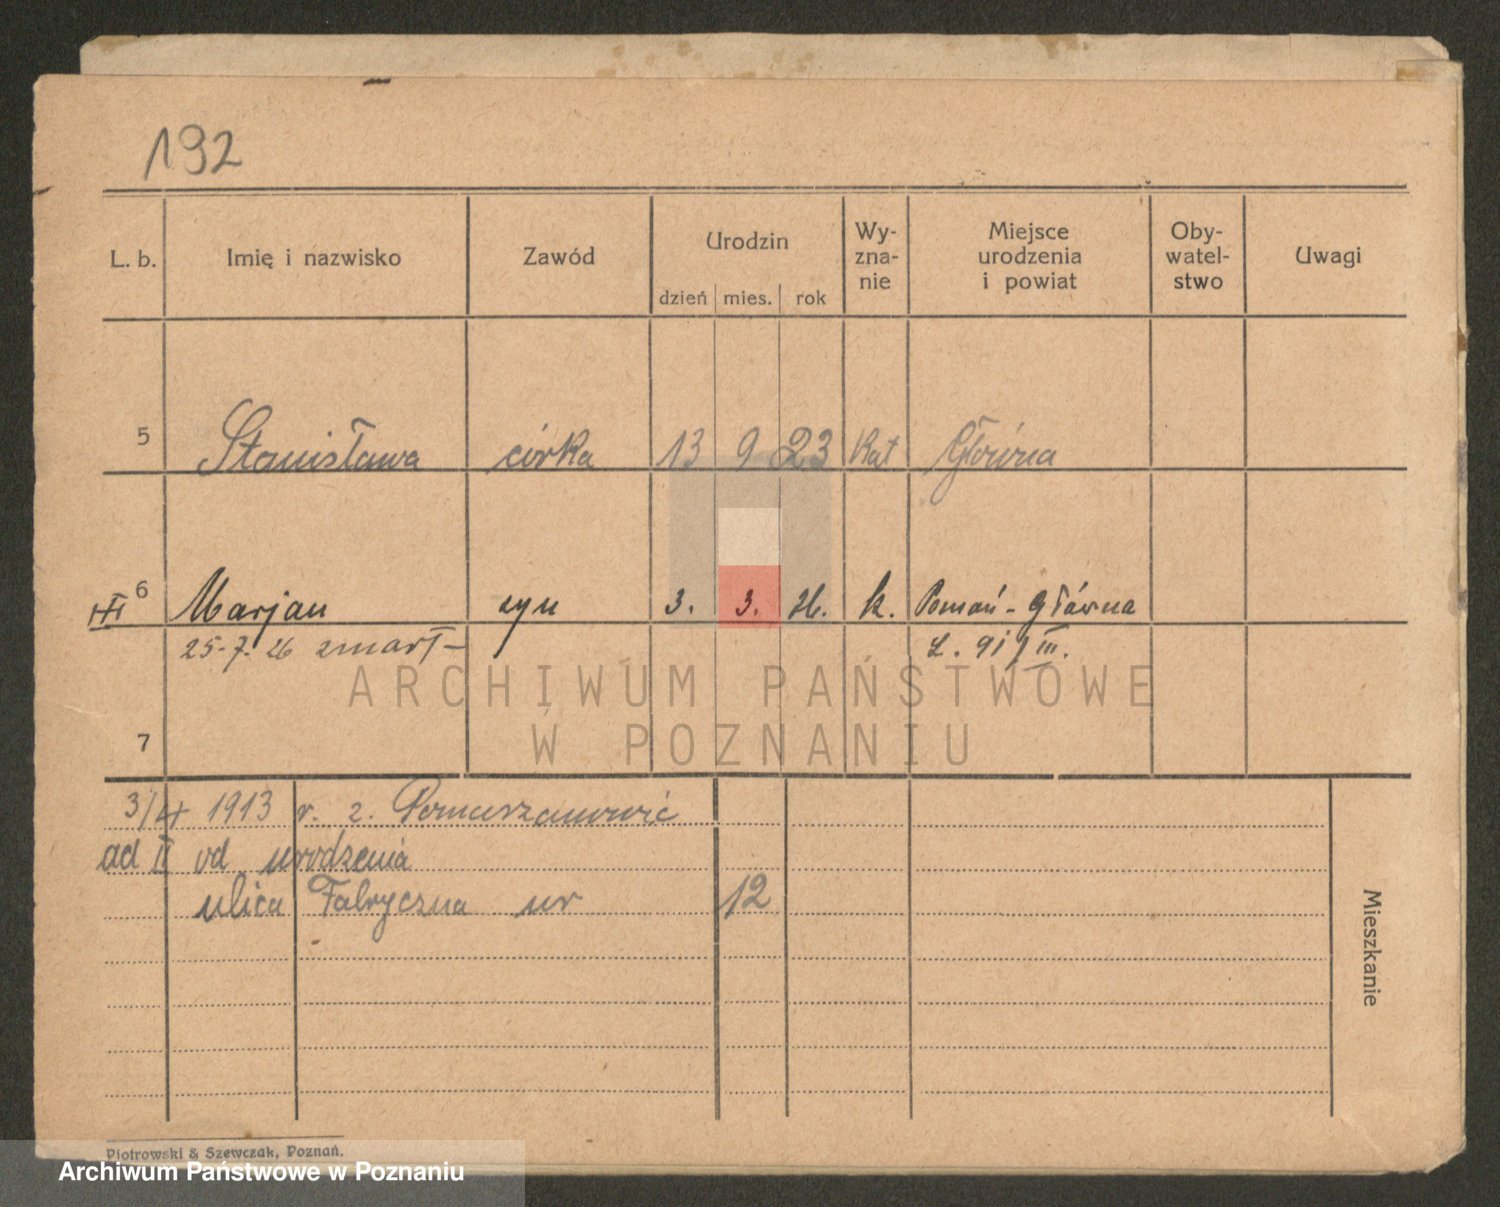 192
L. b. Imię i nazwisko Zawód Urodzin dzień mies. rok Wy-zna-nie Miejsce urodzenia i powiat Oby-watel-stwo Uwagi
5 Stanisława córka 13 9 23 Kat Główna
6 Marjan syn 3. 3. 26. k. Poznań - Główna
25. 7. 26 zmarł L. 91 / III.
ARCHIWUM PAŃSTWOWE
W POZNANIU
7
3/ 1913 r. z
ad II od urodzenia
ulica Fabryczna nr 12
Mieszkanie
Piotrowski & Szewczak, Poznań.
Archiwum Państwowe w Poznaniu